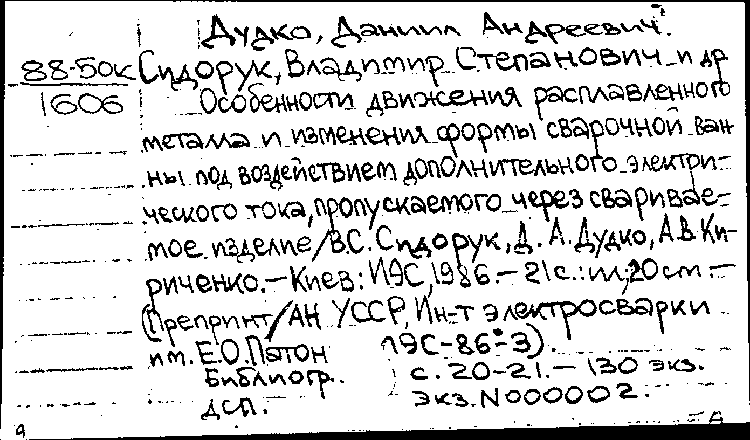 Дудко, Даниил Андреевич.
88-50к Сидорук, Владимир Степанович и др
1606 Особенности движения расплавленного
металла и изменения формы сварочной ван
ны под воздействием дополнительного электри-
ческого тока, пропускаемого через сваривае-
мое изделие/В.С. Сидорук, Д. А. Дудко, А.В. Ки-
риченко.—Киев: ИЭС, 1986.— 21с.: ил; 20см.—
(Препринт/АН УССР, Ин-т электросварки
им. Е.О. Патон ИЭС-86-3).
Библиогр. с. 20-21.— 130 экз.
ДСП. экз. N000002.